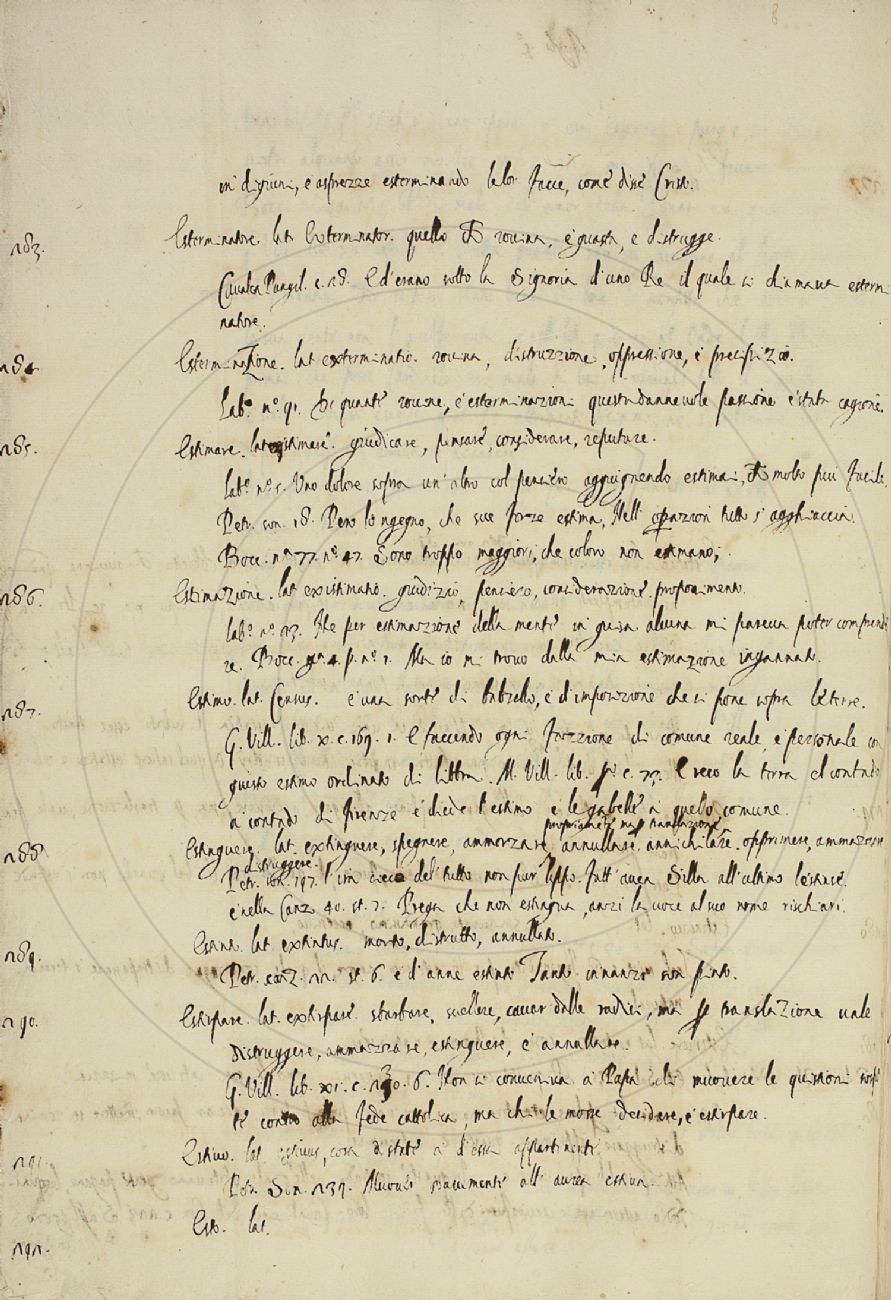 in digiuni, e asprezze esterminando la lor faccie, come disse Cristo.
183. Esterminatore. lat. Exterminator. quello che rovina, e guasta, e distrugge.
Cavalca Pungil. c. 18. E d'erano sotto la Signoria d'uno Re il quale si chiamava estermi-
natore.
184. Esterminazione. lat. exterminatio. rovina, distruzzione, oppressione, e precipizio.
Lab.o n.o 91. Di quante rovine, e esterminazioni questa dannevole passione è stata cagione.
185. Estimare. lat. existimare. giudicare, pensare, considerare, reputare.
Lab.o n.o 5. Uno dolore sopra un'altro col pensiero aggiugnendo estimai, che molto piu facile,
Petr. son. 18. Pero lo ngegno, che sue forze estima, Nell'operazion tutto s'agghiaccia.
Bocc. n. 77. n.o 47. Sono troppo maggiori, che coloro non estimano,.
186. Estimazione. lat. existimatio. giudizio, pensiero, considerazione. proponimento.
Lab.o n.o 13. Ne per estimazione della mente in guisa alcuna mi pareva poter comprende
re. Bocc. g. 4. p. n.o 1. Ma io mi trovo dalla mia estimazione ingannato.
187. Estimo. lat. Census. è una sorte di balzello, e d'imposizione che si pone sopra le terre.
G. Vill. lib. x. c. 169. 1. E facendo ogni fazzione di comune reale, e personale co
giusto estimo ordinato di libbra. M. Vill. lib. c. 73. E reco la terra el contado
a contado di Firenze e diede l'estimo e le gabelle a quello comune.
propriamente ma p translazione
188. Estinguere. lat. extinguere, spegnere, ammorzare, annullare. annichilare. opprimere, ammazzare
distruggere.
Petr. son. 197. l'ira cieco del tutto non pur lippo. Fatt'avea Silla all'ultimo l'estinse.
e nella Canz. 40. st. 7. Prega che non estingua, anzi la voce al suo nome rischiari.
189. Estinto. lat. extintus. morto, distrutto, annullato.
Petr. canz. 11. st. 6. e d'anne estinto Tanto innanzi son pinto.
190. Estirpare. lat. extirpare. sbarbare, svellere, cavar dalle radici, ma p translazione vale
distruggere, ammazzare, estinguere, e annullare.
G. Vill. lib. xi. c. 130. 6. Non si conveniva a Papa di muovere le quistioni sospe
te contro alla fede cattolica, ma chi le move decidere, e estirpare.
191. Estivo. lat. estivus, cosa d'state a d'essa appartinente.
Petr. Son. 139. Muovesi soavemente all'aura estiva.
192. Esto. lat.